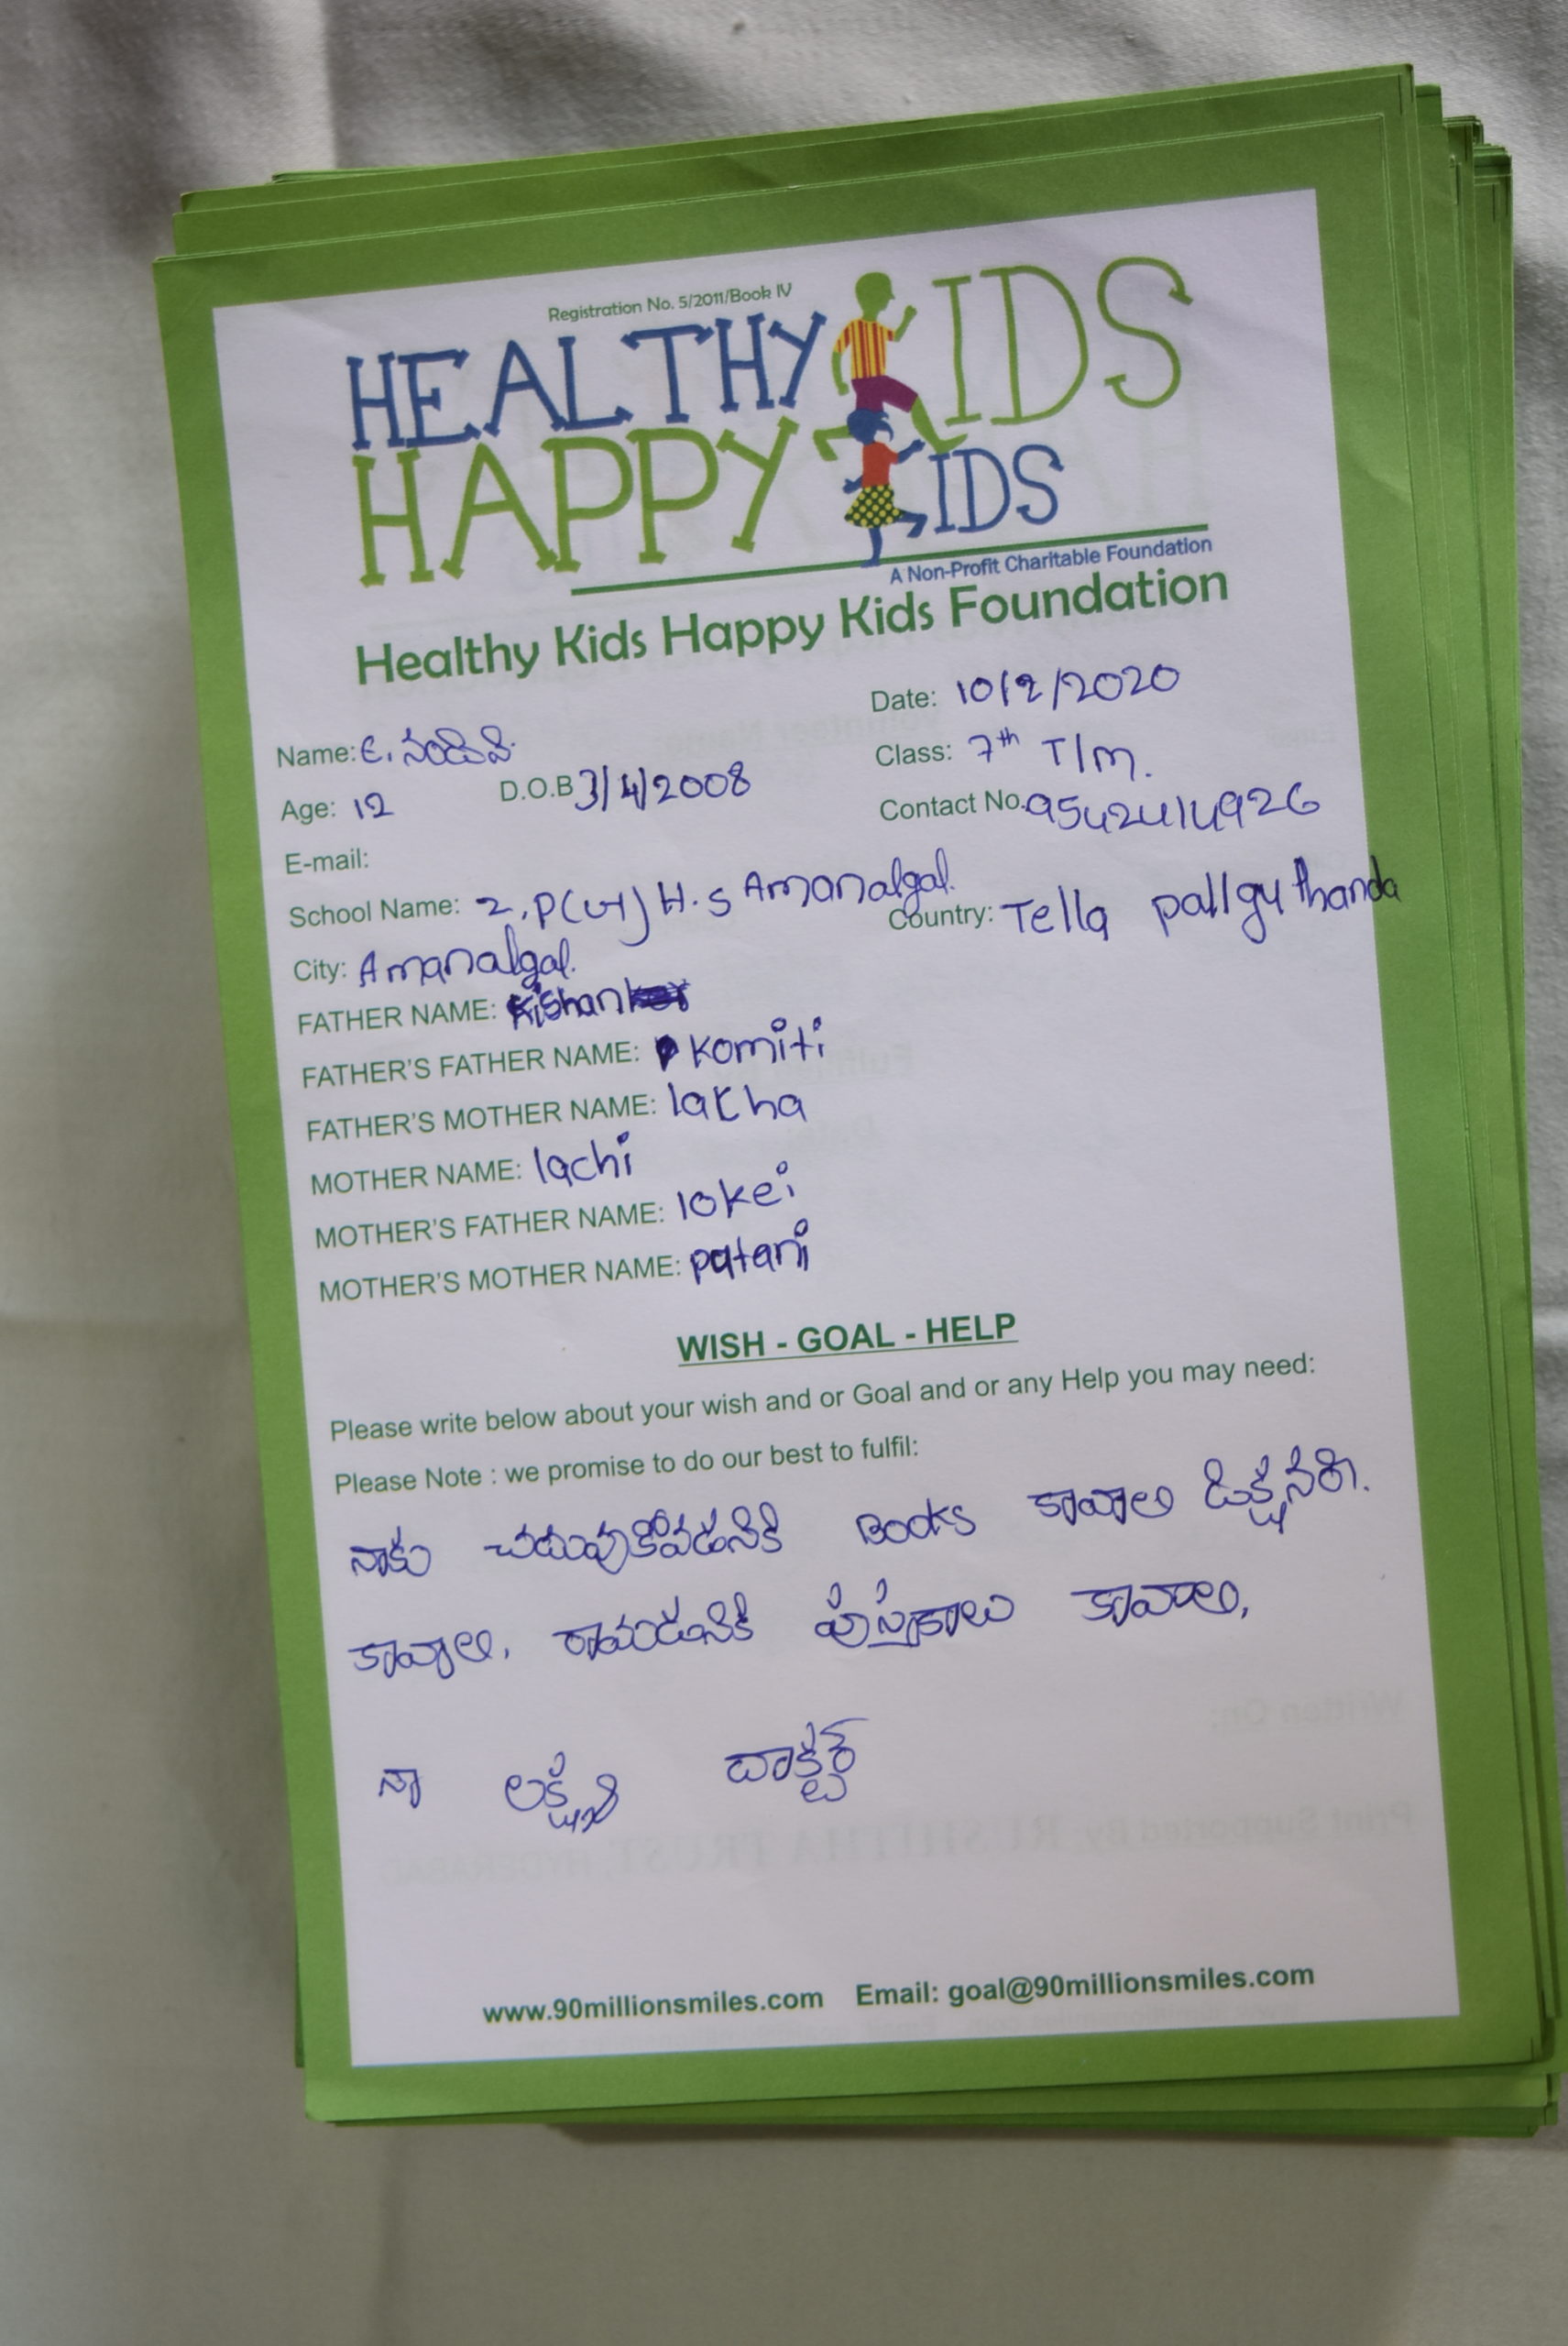 Registration No. 5/2011/Book IV
HEALTHY KIDS
HAPPY KIDS
A Non-Profit Charitable Foundation
Healthy Kids Happy Kids Foundation
Date: 10/2/2020
Name: E.
Class: 7th T/m.
Age: 12 D.O.B 3/4/2008
Contact No. 9542414926
E-mail:
School Name: Z.P(G) H.S Amanalgal.
City: Amanalgal. Country: Tella pallgu thanda
FATHER NAME: Kishan
FATHER'S FATHER NAME: Komiti
FATHER'S MOTHER NAME: latha
MOTHER NAME: lachi
MOTHER'S FATHER NAME: lokei
MOTHER'S MOTHER NAME: patani
WISH - GOAL - HELP
Please write below about your wish and or Goal and or any Help you may need:
Please Note : we promise to do our best to fulfil:
నాకు చదువుకోవడనికి Books కావాలి డిక్షనరి.
కావాలి. రాయడనికి పుస్తకాలు కావాలి,
నా లక్ష్యం దాక్టర్
www.90millionsmiles.com Email: goal@90millionsmiles.com